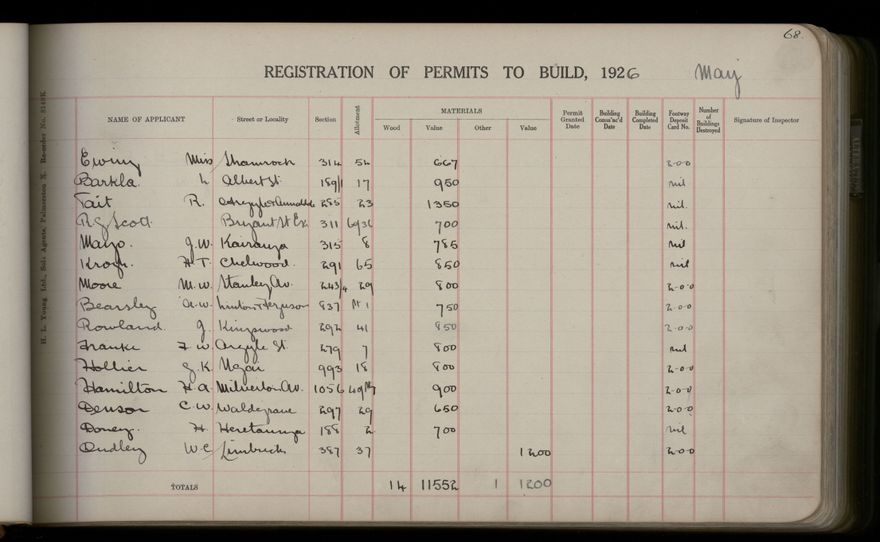 68.
REGISTRATION OF PERMITS TO BUILD, 1926 May
NAME OF APPLICANT Street or Locality Section Allotment MATERIALS Wood Value Other Value Permit Granted Date Building Comm'nc'd Date Building Completed Date Footway Deposit Card No. Number of Buildings Destroyed Signature of Inspector
Ewing Miss Shamrock 314 54 667 2-0-0
Barkla. L Albert St. 189/1 17 950 nil
Tait R. 285 23 1350 nil.
R G Scott Bryant St Ex 311 700 nil.
Mayo. J.W. Kairanga 315 8 785 nil
Krogh. H.T. Chelwood. 291 65 850 nil
Moore M.W. Stanley Av. 243/4 29 800 2-0-0
Bearsley A.W. Linton & Ferguson 837 Pt 1 750 2-0-0
Rowland. J. Kingswood 292 41 850 2-0-0
Franke F.W. Argyle St. 279 7 800 nil
Hollier J.K. Ngair 993 18 800 2-0-0
Hamilton H.A. Milverton Av. 1056 900 2-0-0
Denson C.W. Waldegrave 297 29 650 2-0-0
Doney. H. Heretaunga 188 2 700 nil
Dudley W.C. Limbrick 387 37 1200 2-0-0
TOTALS 14 11552 1 1200
H. L. Young Ltd., Sole Agents, Palmerston N. Re-order No. 8149K